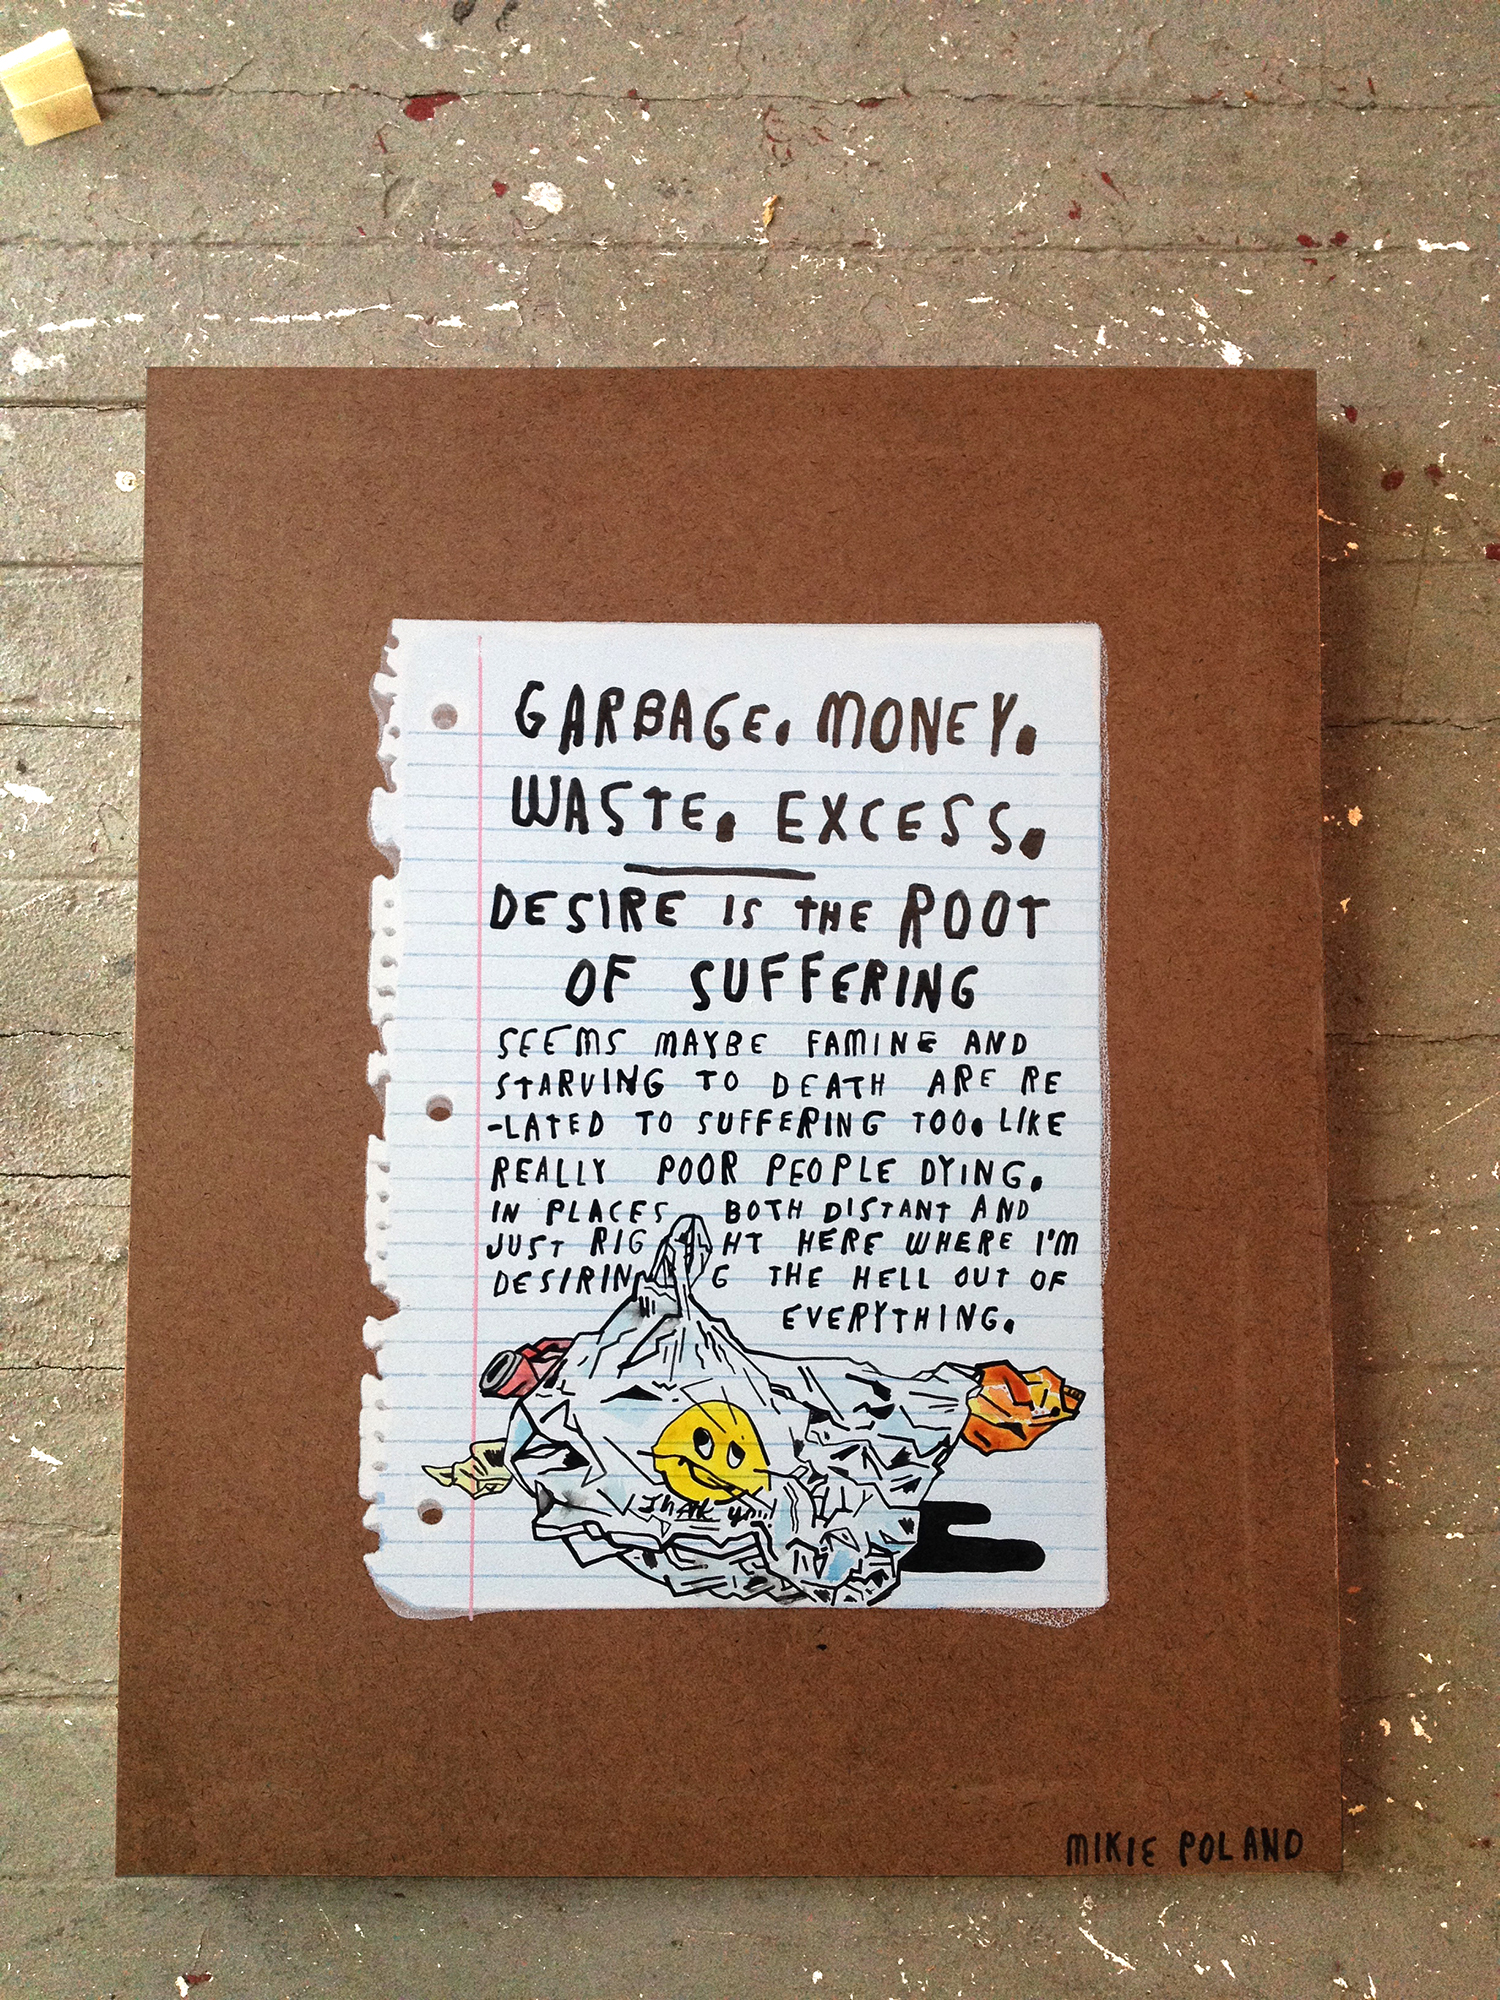 GARBAGE. MONEY.
WASTE. EXCESS.
DESIRE IS THE ROOT
OF SUFFERING
SEEMS MAYBE FAMINE AND
STARVING TO DEATH ARE RE
-LATED TO SUFFERING TOO. LIKE
REALLY POOR PEOPLE DYING.
IN PLACES BOTH DISTANT AND
JUST RIGHT HERE WHERE I'M
DESIRING THE HELL OUT OF
EVERYTHING.
THANK YOU!
MIKIE POLAND